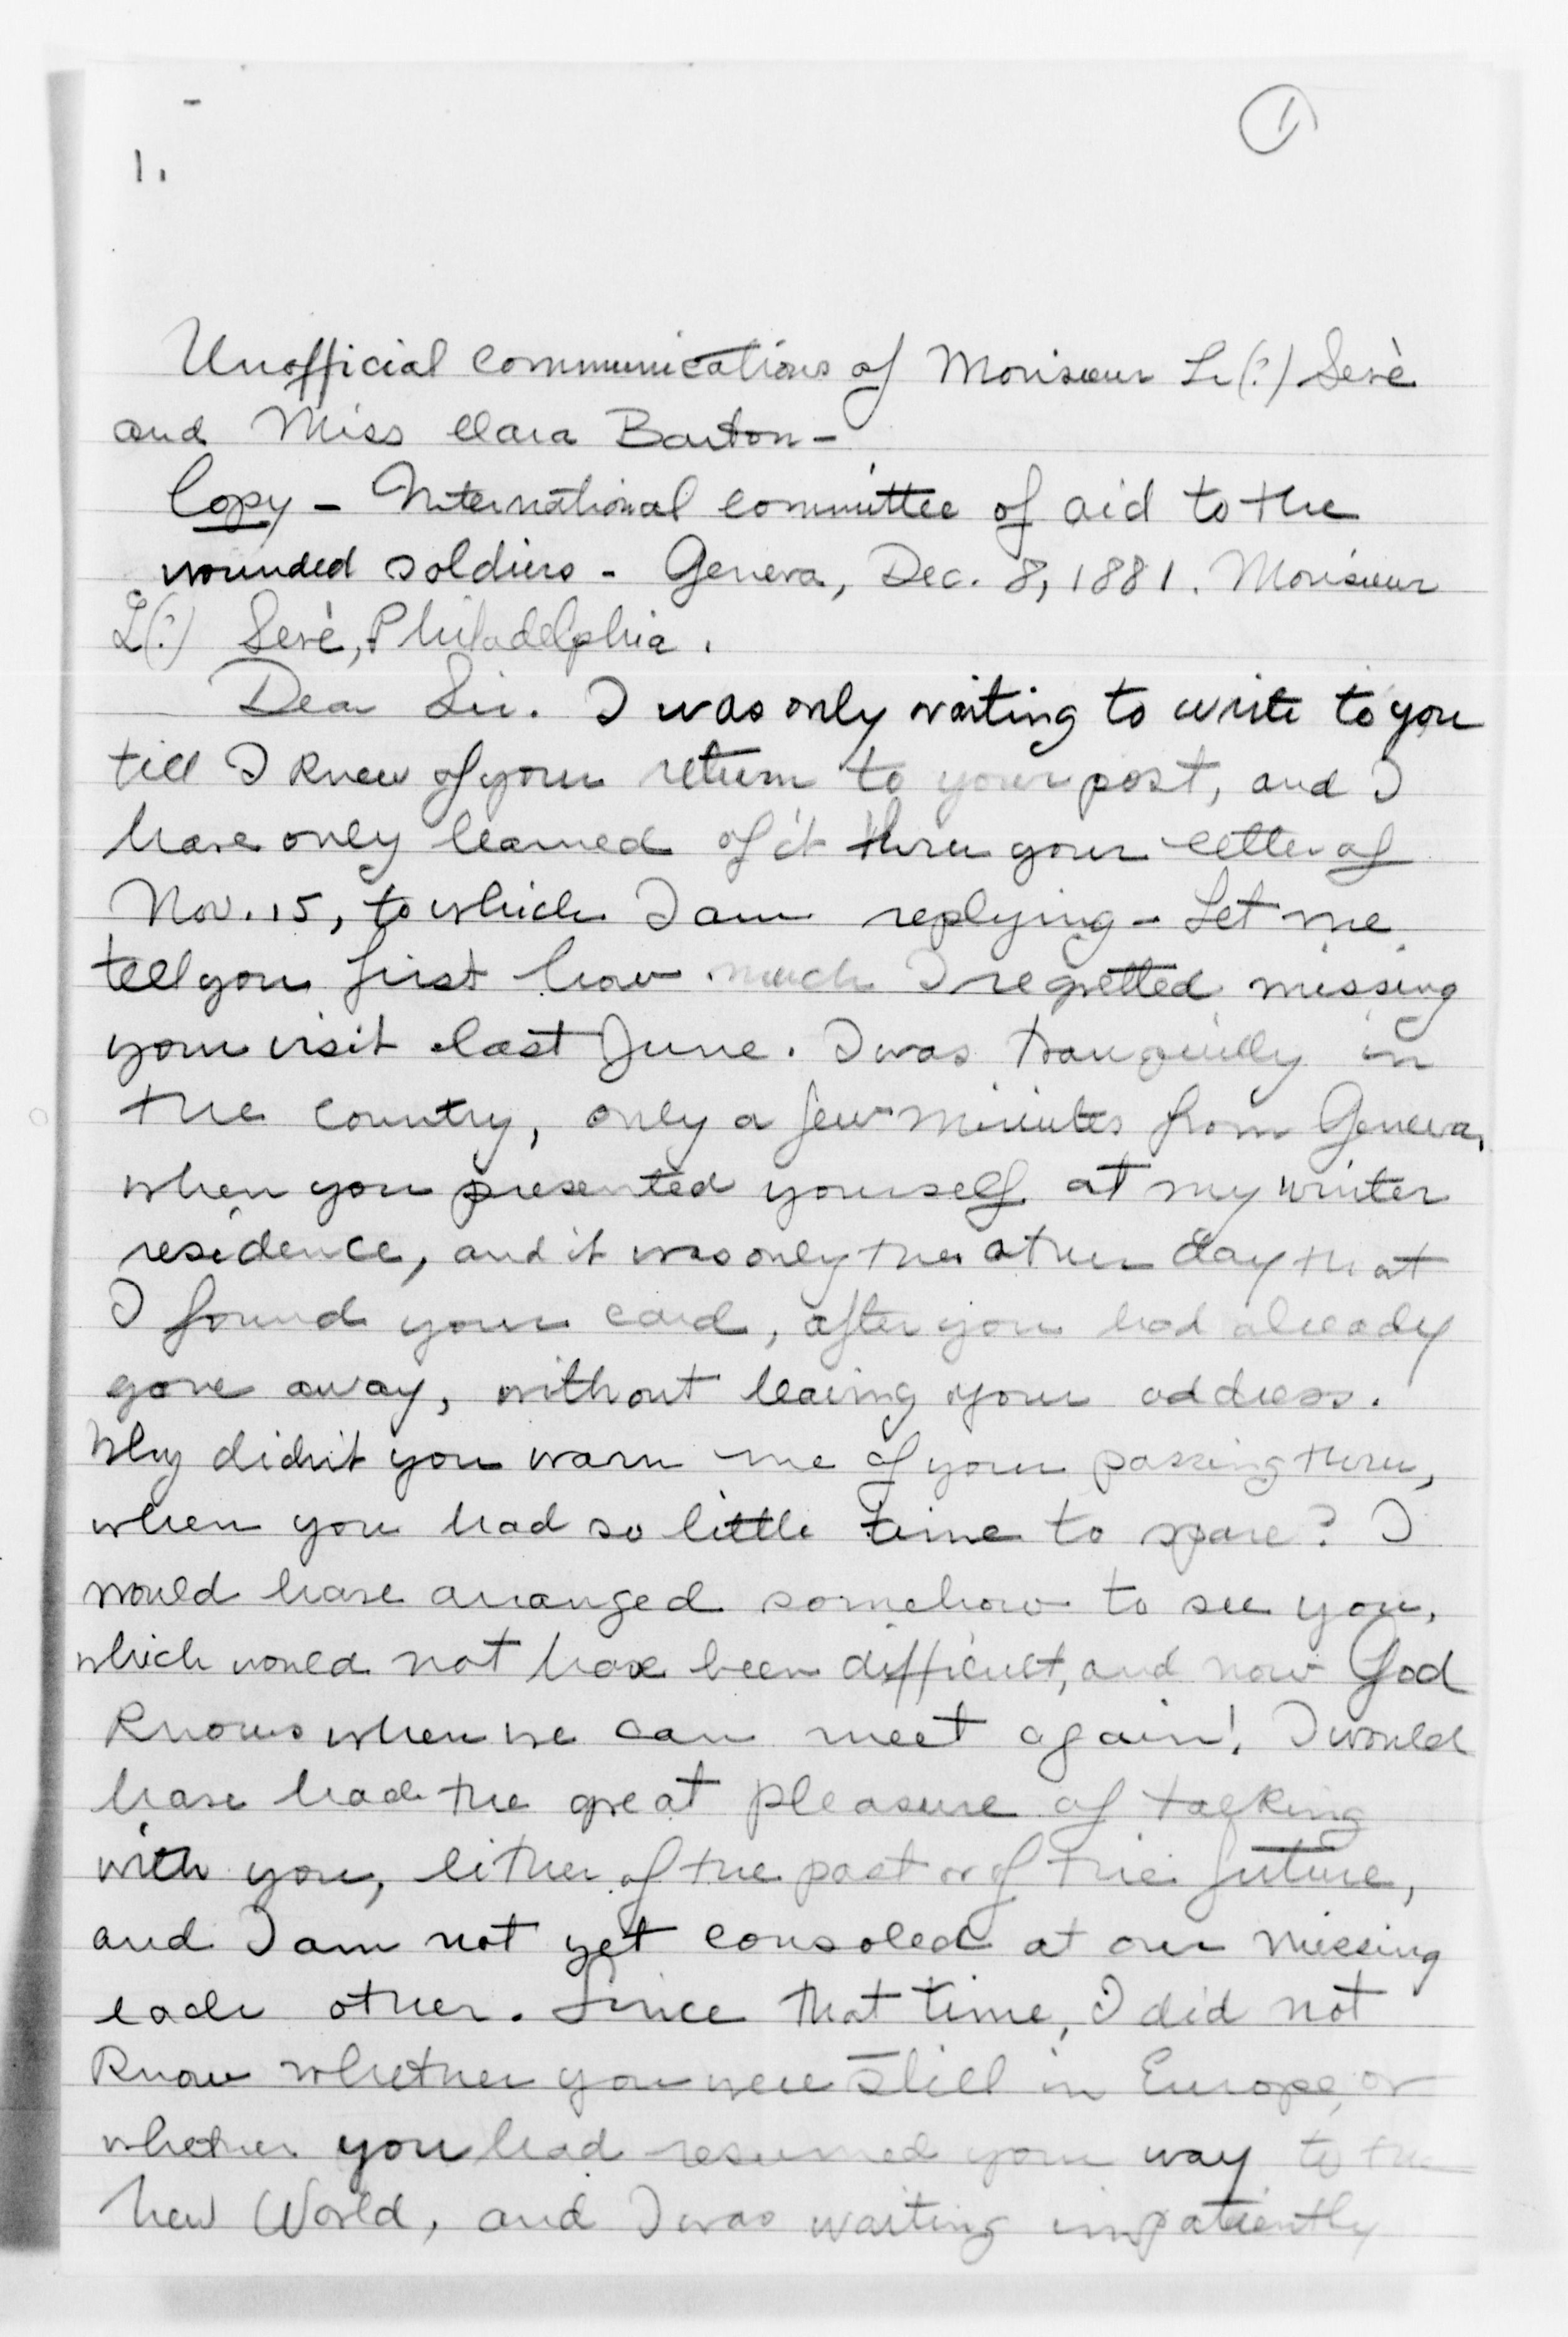 ①
1.
Unofficial communications of Monsieur Le(?) Serè
and Miss Clara Barton -
Copy - International committee of aid to the
wounded soldiers - Geneva, Dec. 8, 1881. Monsieur
L(?) Serè, Philadelphia.
Dear Sir. I was only waiting to write to you
till I knew of your return to your post, and I
have only learned of it thru your letter of
Nov. 15, to which I am replying - Let me
tell you first how much I regretted missing
your visit last June. I was tranquilly in
the country, only a few minutes from Geneva,
when you presented yourself at my winter
residence, and it was only the other day that
I found your card, after you had already
gone away, without leaving your address.
Why didn't you warn me of your passing thru,
when you had so little time to spare? I
would have arranged somehow to see you,
which would not have been difficult, and now God
knows when we can meet again! I would
have had the great pleasure of talking
with you, either of the past or of the future,
and I am not yet consoled at our missing
each other. Since that time, I did not
know whether you were still in Europe, or
whether you had resumed your way to the
New World, and I was waiting impatiently